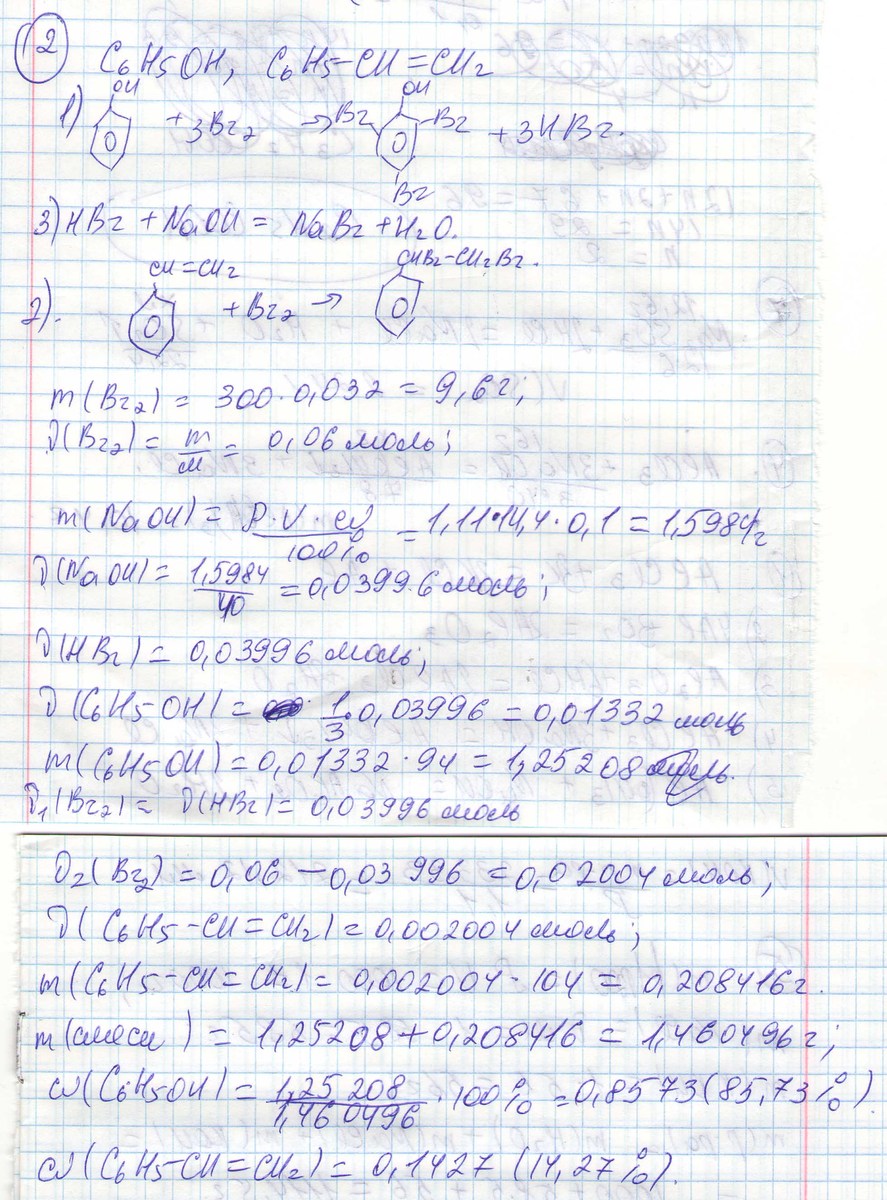 (2)
C6H5OH, C6H5-CH=CH2
1) OH + 3Br2 → Br OH Br Br + 3HBr.
3) HBr + NaOH = NaBr + H2O.
2). CH=CH2 + Br2 → CHBr-CH2Br.
m(Br2) = 300·0,032 = 9,6г;
ν(Br2) = m/M = 0,06 моль;
m(NaOH) = ρ·V·ω/100% = 1,11·14,4·0,1 = 1,5984г
ν(NaOH) = 1,5984/40 = 0,03996 моль;
ν(HBr) = 0,03996 моль;
ν(C6H5OH) = 1/3·0,03996 = 0,01332 моль
m(C6H5OH) = 0,01332·94 = 1,25208
ν1(Br2) = ν(HBr) = 0,03996 моль
ν2(Br2) = 0,06 - 0,03996 = 0,02004 моль;
ν(C6H5-CH=CH2) = 0,002004 моль;
m(C6H5-CH=CH2) = 0,002004·104 = 0,208416г.
m(смеси) = 1,25208 + 0,208416 = 1,460496г;
ω(C6H5OH) = 1,25208/1,4600496·100% = 0,8573 (85,73%)
ω(C6H5-CH=CH2) = 0,1427 (14,27%).